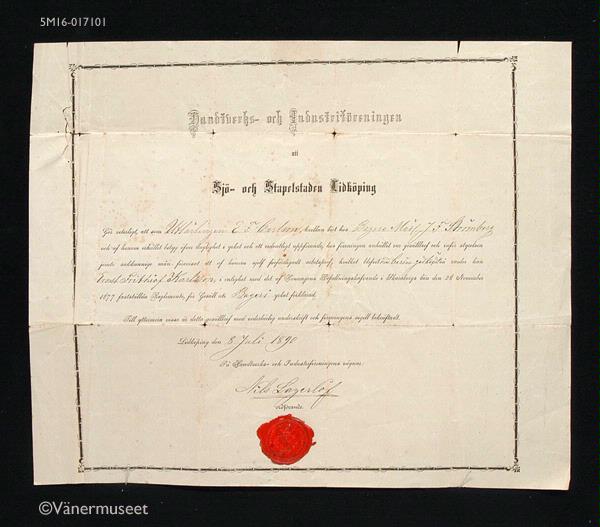 5M16-017101
Handtverks- och Industriföreningen
uti
Sjö- och Stapelstaden Lidköping
Gör veterligt, att som Utlärlingen E. F. Carlson, hvilken lärt hos Bagare Mäst. J. F. Strömberg
och af honom erhållit betyg öfver skicklighet i yrket och ett ordentligt uppförande, har föreningen
Ernst Frithiof Karlsson, i enlighet med det af Konungens Befallningshafvande i Mariestad den 28 November
1877 fastställda Reglemente, för Gesäll uti Bageri yrket förklarad.
Till yttermera visso är detta gesällbref med vederbörlig underskrift och föreningens sigill bekräftadt.
Lidköping den 8 Juli 1890
På Handtverks- och Industriföreningens vägnar
Nils Lagerlöf
ordförande.
©Vänermuseet